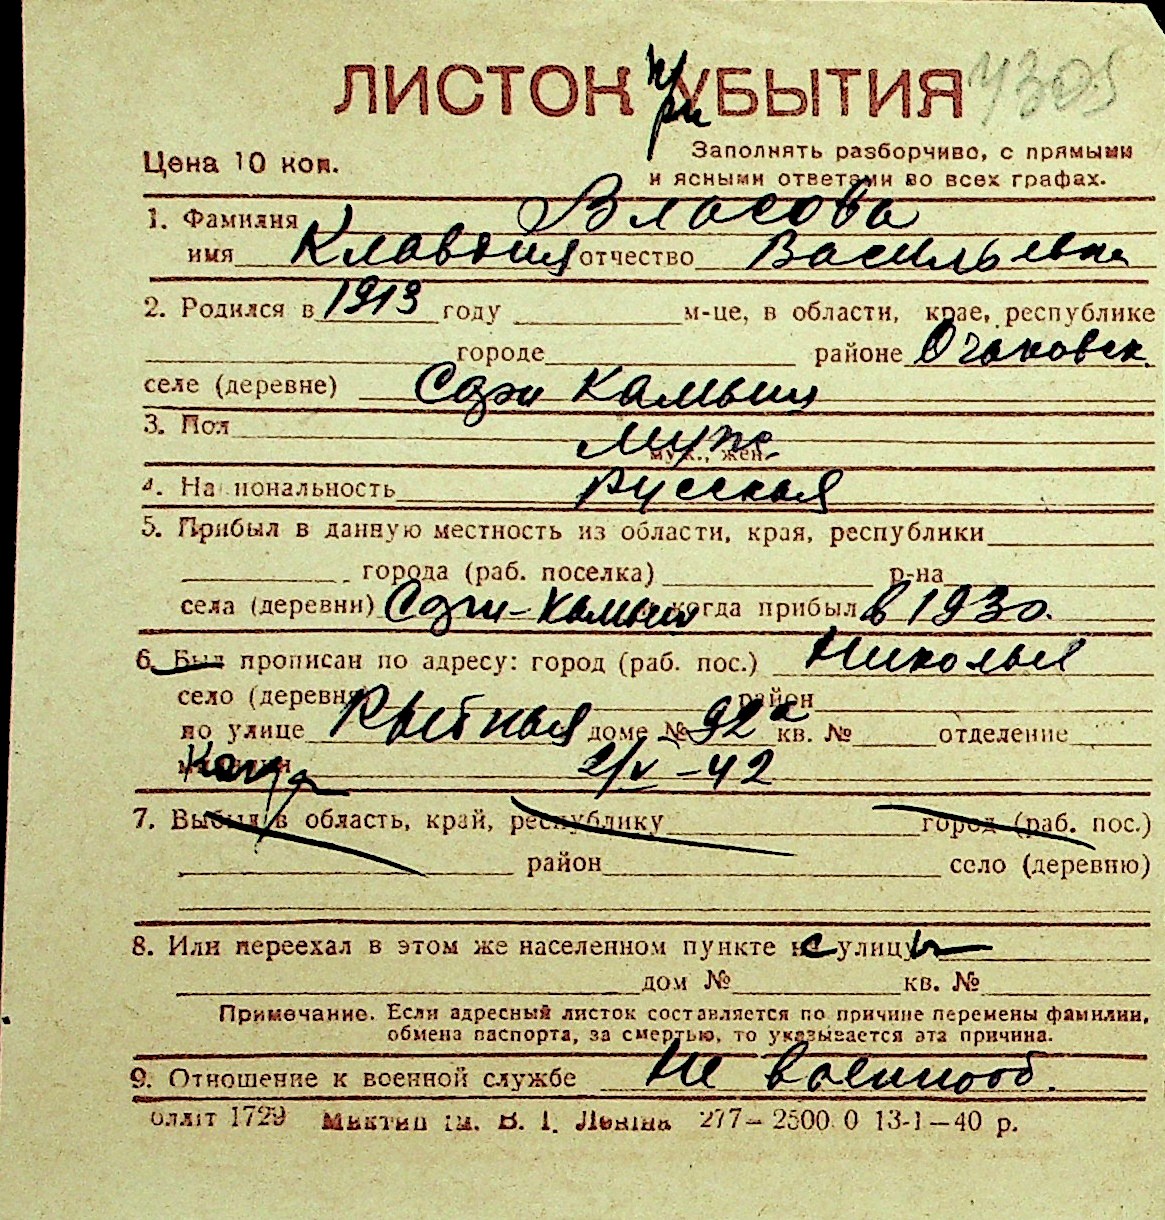 ЛИСТОК при УБЫТИЯ 7305
Цена 10 коп.
Заполнять разборчиво, с прямыми
и ясными ответами во всех графах.
1. Фамилия Власова
имя Клавдия отчество Васильевна
2. Родился в 1913 году м-це, в области, крае, республике
городе районе Очаковск.
селе (деревне) Камыш
3. Пол
муж., жен.
4. Национальность русская
5. Прибыл в данную местность из области, края, республики
города (раб. поселка) р-на
села (деревни) Камыш когда прибыл в 1930.
6. Был прописан по адресу: город (раб. пос.) Николаев
село (деревня) район
по улице Рыбная доме № 92а кв. № отделение
Когда 2/V-42
7. Выбыл в область, край, республику город (раб. пос.)
район село (деревню)
8. Или переехал в этом же населенном пункте с улицы
дом № кв. №
Примечание. Если адресный листок составляется по причине перемены фамилии,
обмена паспорта, за смертью, то указывается эта причина.
9. Отношение к военной службе Не военнооб.
1729 ім. В. І. Леніна 277—2500.0 13-1—40 р.